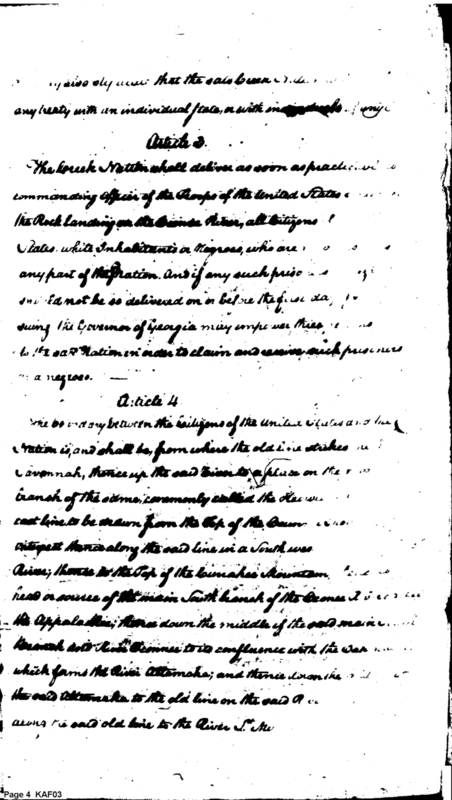 that the said Creek
any treaty with an individual State, or with individuals
Article 3.
The Creek Nation shall deliver as soon as
commanding officer of the Troops of the United States
the Rock landing on the Oconee River, all Citizens
States, white Inhabitants or Negroes, who are
any part of the Nation. And if any such
not be so delivered on or before the first day
suing the Governor of Georgia may empower three
to the said Nation in order to claim and receive such prisoners
negroes.
Article 4
The boundary between the Citizens of the United States and the
Nation is, and shall be, from where the old line strikes
Savannah, thence up the said River to a place on the
branch of the same, commonly called the
east line to be drawn from the top of the
thence along the said line in a South
River; thence to the Top of the Currahee Mountain
head or source of the main South branch of the Oconee
the Appalachee; thence down the middle of the said main
Branch and River Oconee to its confluence with the
which forms the River Altamaha; and thence down the
the said Altamaha to the old line on the said
along the said old line to the River St.
Page 4 KAF03